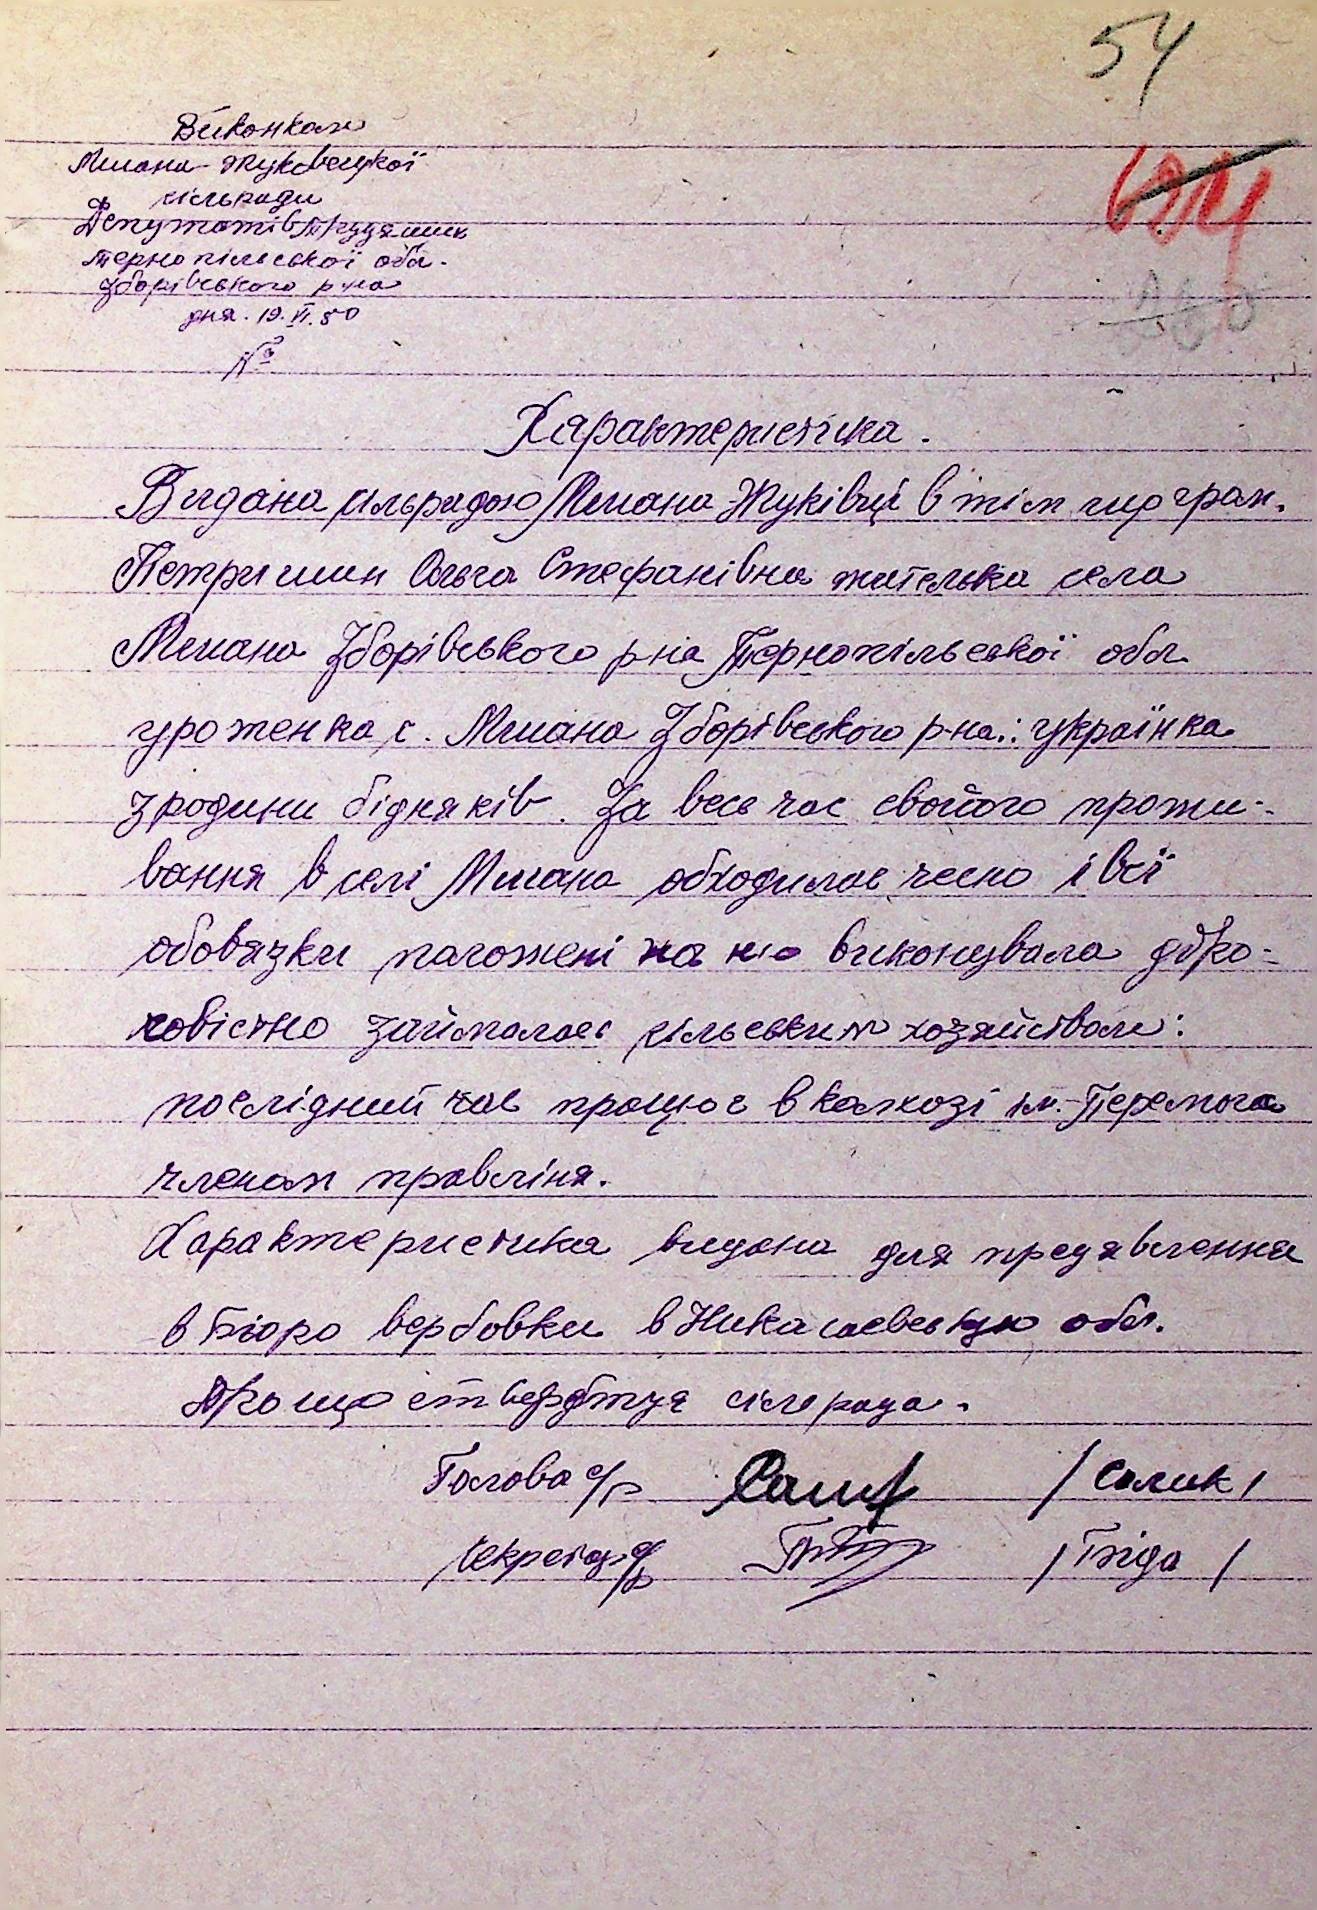 54
Виконком
Млина-Жуковецкої
сільради
Депутатів Трудящих
Тернопільської обл.
Зборівського р-на
дня. 19.VI.50
№
Характеристика.
Видана сільрадою Млина-Жуківці в тім що грам.
Петришин Ольга Стефанівна жителька села
Млина Зборівського р-на Тернопільської обл
уроженка с. Млина Зборівського р-на: українка
з родини бідняків. За весь час свойого прожи-
вання в селі Млина обходилас чесно і всі
обовязки положені на ню виконувала добро-
совістно займалась сільським хозяйством:
послідний час працює в колхозі ім. Перемога
членом правліня.
Характеристика видана для предявлення
в Бюро вербовки в Николаевськую обл.
Про що стверджує сілєрада.
Голова с/р /Солик/
секретар с/р /Біда/